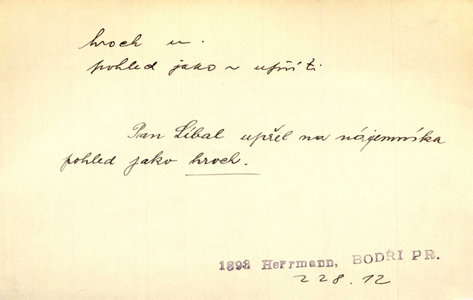 hroch m.
pohled jako ~ upříti
Pan Líbal upřel na nájemníka
pohled jako hroch.
1898 Herrmann, BODŘI PR.
228.12